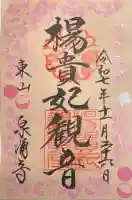 令和七年十一月二十六日
楊貴妃観音
東山 泉涌寺